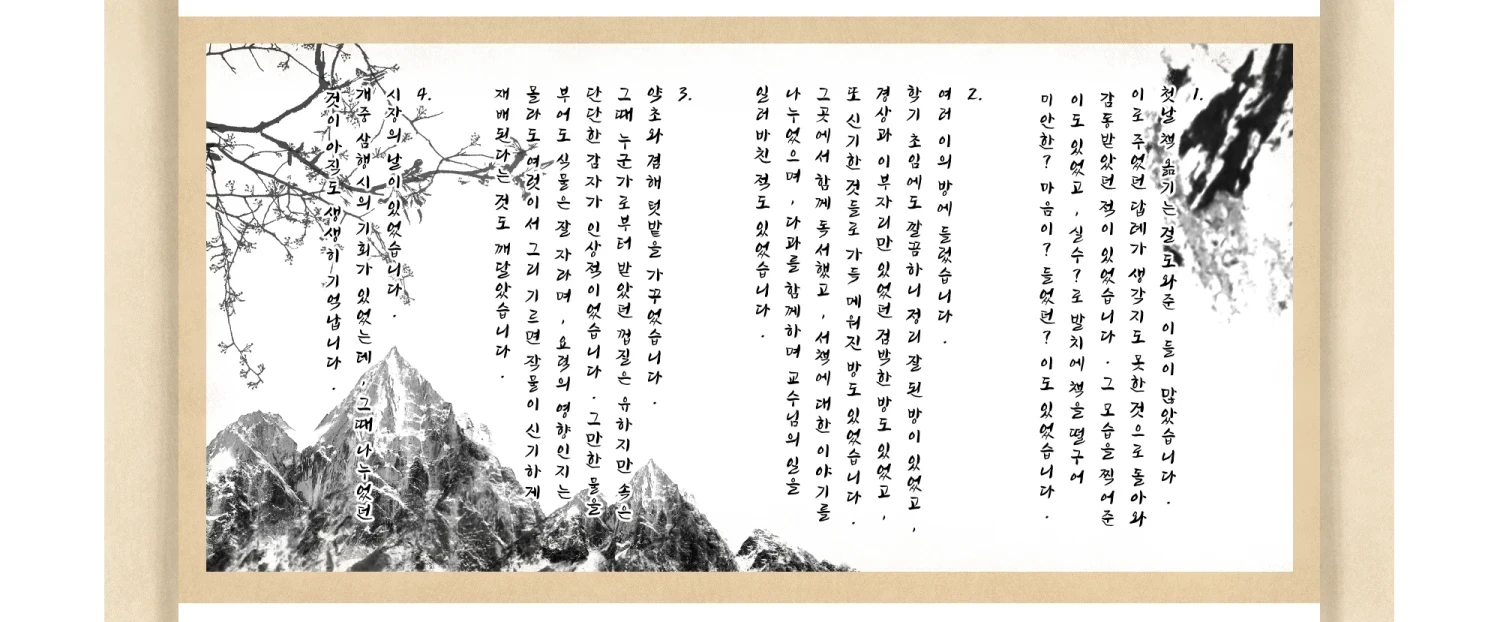 1.
첫날 책 옮기는 걸 도와준 이들이 많았습니다.
이로 주었던 답례가 생각지도 못한 것으로 돌아와
감동받았던 적이 있었습니다. 그 모습을 찍어준
이도 있었고, 실수?로 발치에 책을 떨구어
미안한? 마음이? 들었던? 이도 있었습니다.
2.
여러 이의 방에 들렀습니다.
학기 초임에도 깔끔하니 정리 잘 된 방이 있었고,
경상과 이부자리만 있었던 검박한 방도 있었고,
또 신기한 것들로 가득 메워진 방도 있었습니다.
그곳에서 함께 독서했고, 서책에 대한 이야기를
나누었으며, 다과를 함께하며 교수님의 일을
일러바친 적도 있었습니다.
3.
약초와 겸해 텃밭을 가꾸었습니다.
그때 누군가로부터 받았던 껍질은 유하지만 속은
단단한 감자가 인상적이었습니다. 그만한 물을
부어도 식물은 잘 자라며, 요력의 영향인지는
몰라도 여럿이서 그리 기르면 작물이 신기하게
재배된다는 것도 깨달았습니다.
4.
시장의 날이 있었습니다.
개중 삼행시의 기회가 있었는데, 그때 나누었던
것이 아직도 생생히 기억납니다.